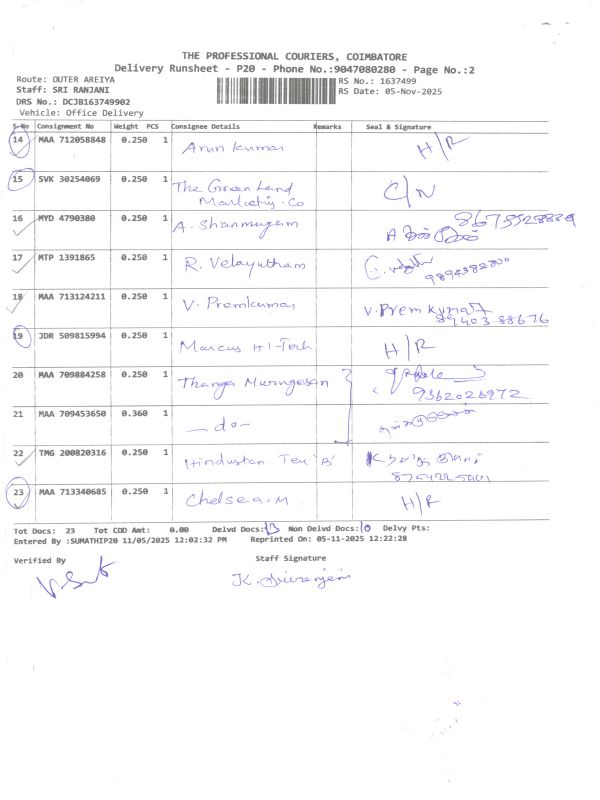 THE PROFESSIONAL COURIERS, COIMBATORE
Delivery Runsheet - P20 - Phone No.:9047080280 - Page No.:2
Route: OUTER AREIYA RS No.: 1637499
Staff: SRI RANJANI RS Date: 05-Nov-2025
DRS No.: DCJB163749902
Vehicle: Office Delivery
S-No Consignment No Weight PCS Consignee Details Remarks Seal & Signature
14 MAA 712058848 0.250 1 Arun kumar H/R
15 SVK 30254069 0.250 1 The Green Land C/N
Marketing. Co
16 MYD 4790380 0.250 1 A. Shanmugam
17 MTP 1391865 0.250 1 R. Velayutham
18 MAA 713124211 0.250 1 V. Premkumar V. Prem kumar
8940388676
19 JDR 509815994 0.250 1 Marcus HI-Tech H/R
20 MAA 709884258 0.250 1 Thanga Murugesan
9362026972
21 MAA 709453650 0.360 1 — do —
22 TMG 200820316 0.250 1 Hindustan Tex 'B'
23 MAA 713340685 0.250 1 Chelsea. M. H/R
Tot Docs: 23 Tot COD Amt: 0.00 Delvd Docs: 13 Non Delvd Docs: 10 Delvy Pts:
Entered By :SUMATHIP20 11/05/2025 12:02:32 PM Reprinted On: 05-11-2025 12:22:28
Verified By Staff Signature